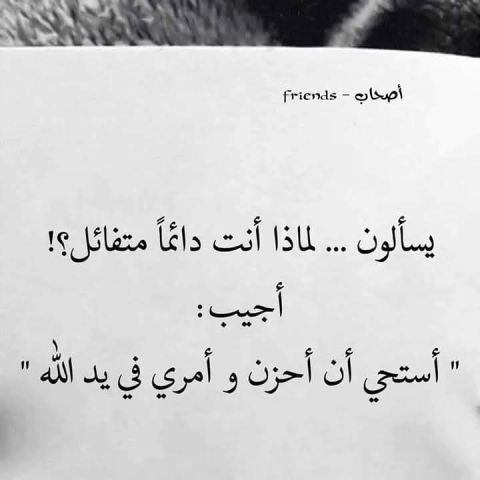 أصحاب - friends
يسألون ... لماذا أنت دائماً متفائل؟!
أجيب:
" أستحي أن أحزن و أمري في يد الله "